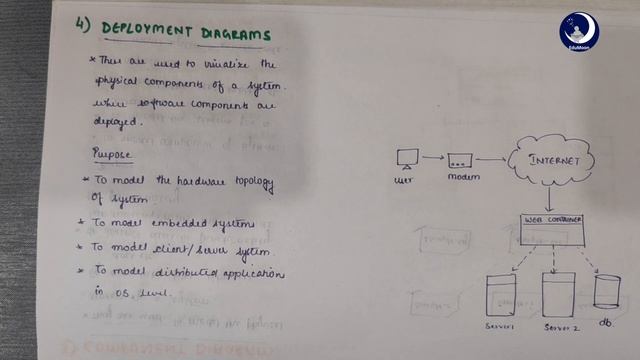 4) DEPLOYMENT DIAGRAMS
* These are used to visualize the
physical components of a system.
where software components are
deployed.
Purpose
* To model the hardware topology
of system
* To model embedded systems
* To model client/server system.
* To model distributed application
in OS level.
user
modem
INTERNET
WEB CONTAINER
Server1
Server 2
db
EduMoon